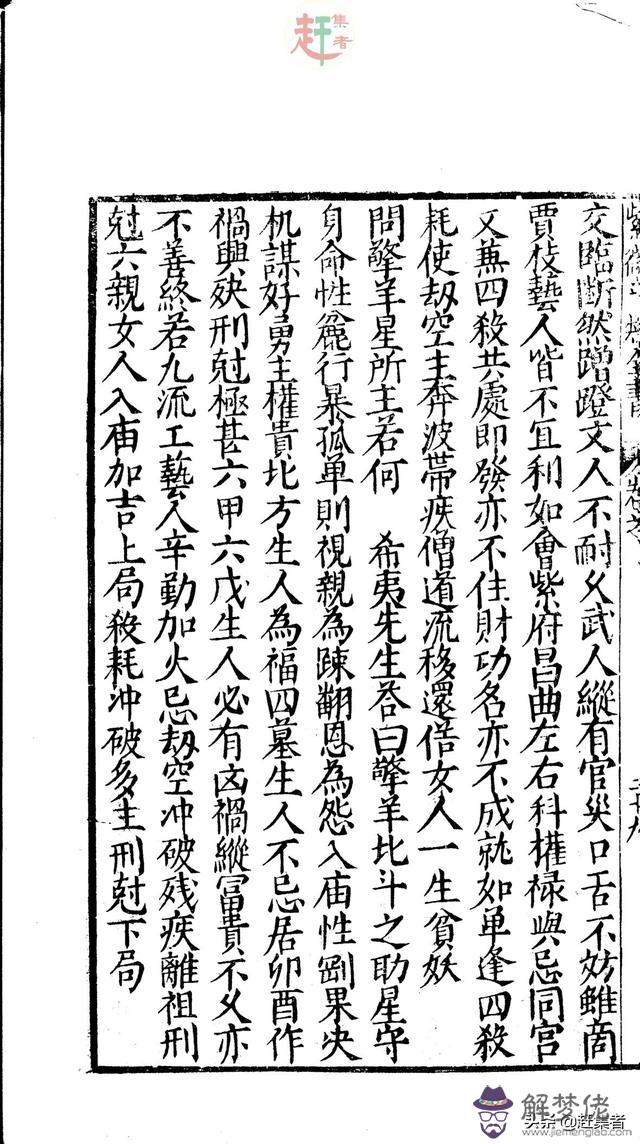 赶集者
交臨断然蹭蹬文人不耐久武人縱有官災口舌不妨雖商
賈技藝人皆不宜利如會紫府昌曲左右科權祿與忌同宫
又兼四殺共處即發亦不住財功名亦不成就如单逢四殺
耗使劫空主奔波帶疾僧道流移還俗女人一生貧妖
問擎羊星所主若何 希夷先生答曰擎羊北斗之助星守
身命性麄行暴孤单則視親為踈翻恩為怨入庙性剛果决
机謀好勇主權貴北方生人為福四墓生人不忌居卯酉作
禍興殃刑尅極甚六甲六戊生人必有凶禍縱冨貴不久亦
不善終若九流工藝人辛勤加火忌劫空冲破残疾離祖刑
尅六親女人入庙加吉上局殺耗冲破多主刑尅下局
解梦佬
头条@赶集者
www.jiemenglab.com